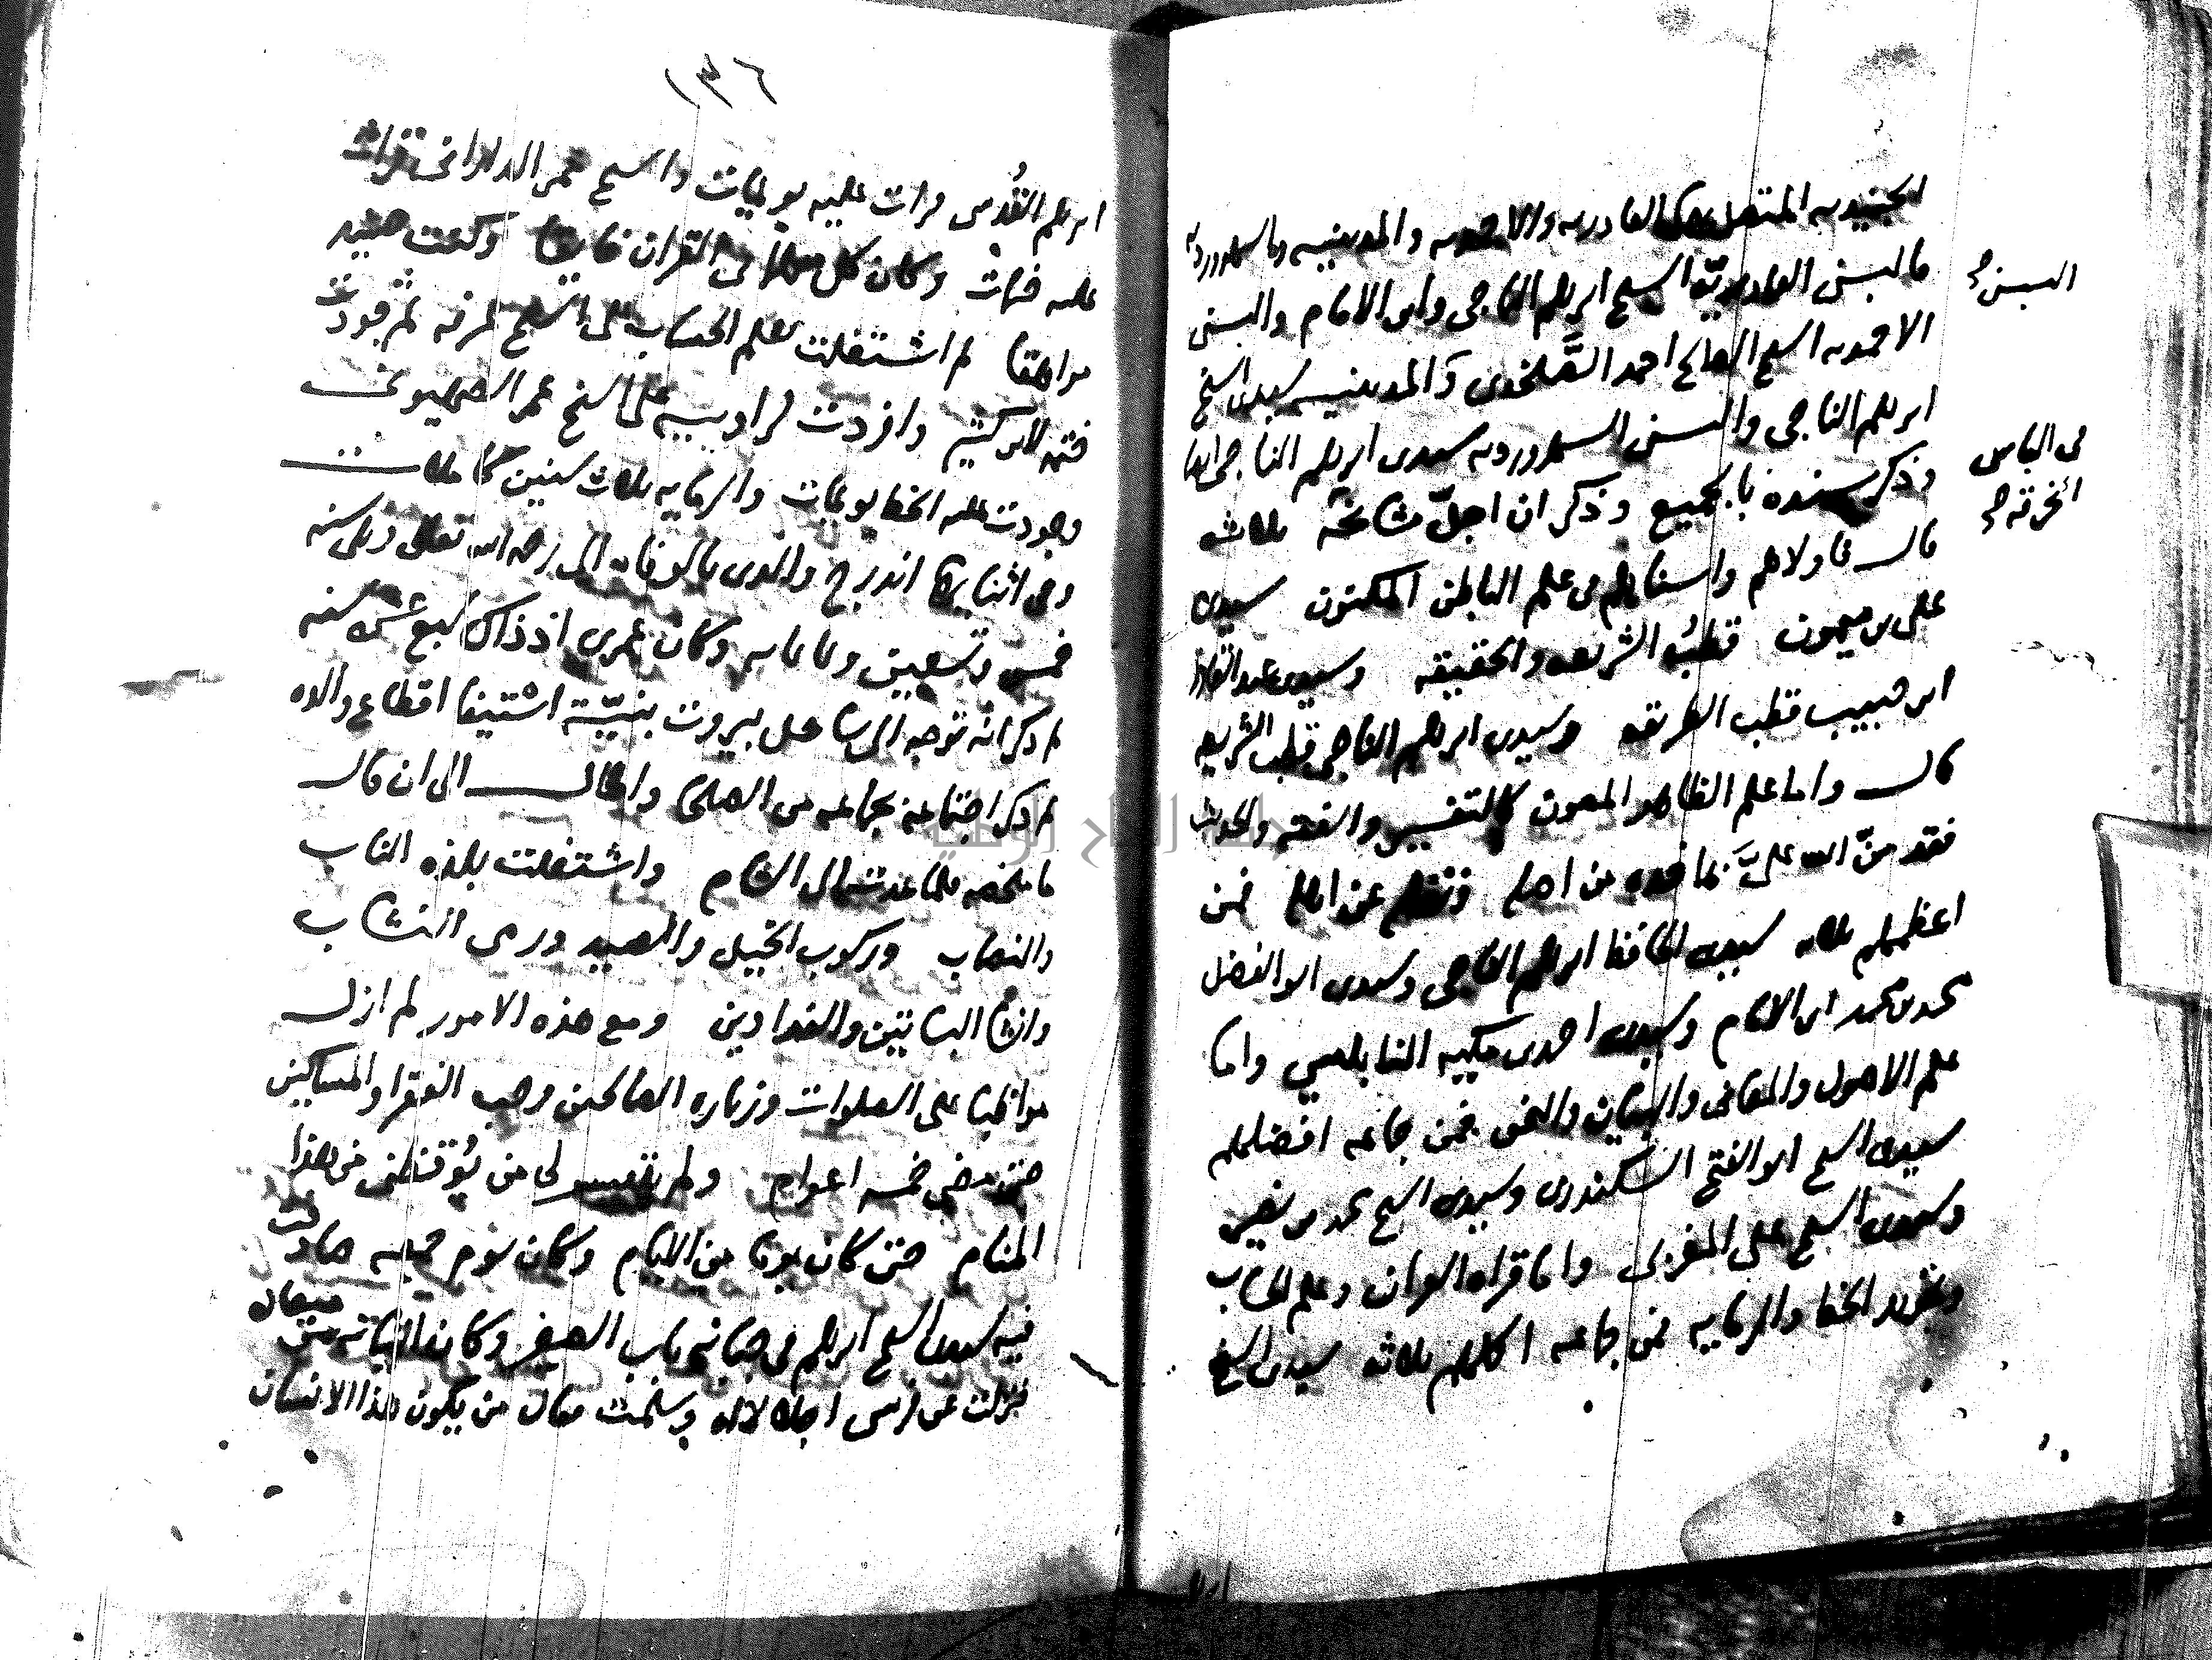 الجنيديه المتصل بها القادريه والاحمديه والمدينيه والسهرورديه
فالبسنى القادريّه الشيخ ابرهيم الناجى وابن الامام والبسنى
الاحمديه الشيخ الصالح احمد الصَّلخدى والمدينيه سيدى الشيخ
ابرهيم الناجى والبسنى السهرورديه سيدى ابرهيم الناجى ايضا
وذكر سنده بالجميع وذكر ان اجلّ مشائخه ثلاثه
قال فاولاهم واسناهم فى علم الباطن المكنون سيدى
على بن ميمون قطبُ الشريعه والحقيقه وسيدى عبد القادر
ابن حبيب قطب الطريقه وسيدى ابرهيم الناجى قطب الشريعه
قال واما علم الظاهر المصون كالتفسير والفقه والحديث
فقد منّ الله علىَّ بما من اهله عن اهلها فمن
اعظمهم ثلاثه سيدى الحافظ ابرهيم الناجى وسيدى ابو الفضل
محمد بن محمد ابن الامام وسيدى احمد بن مكيه النابلسى واما
علم الاصول والمعانى والبيان والنحو فمن جماعه افضلهم
سيدى الشيخ ابو الفتح السكندرى وسيدى الشيخ محمد بن نصير
وسيدى الشيخ على المغربى واما قراه القران وعلم الحساب
وتجويد الخط والرمايه فمن جماعه اكملهم ثلاثه سيدى الشيخ
البسنى
فى الباس
الخرقه
١٣٦
ابرهيم القُدسى قرات عليه بوعيات والشيخ عمر الدارانى قرات
عليه ختمات وكان كل منهما فى القران فايقا وكنت حينئد
مراهقا ثم اشتغلت بعلم الحساب على الشيخ ثم قودت
لابن كثير وافردت لراوييه على الشيخ عمر الصهيونى
وجودت عليه الخط بوعيات والرمايه ثلاث سنين كاملات
وفى اثنايها اندرج والدى بالوفاه الى رحمه الله تعالى وهى سنه
خمس وتسعين وثمانمايه وكان عمرى اذ ذاك سبع عشره سنه
ثم ذكر انه توجه الى ساحل بيروت بنيّة استيفا اقطاع والده
ثم ذكر اجتماعه بجماعه من الصلحا واطال الى ان قال
ما ملخصه فلما عدت الى الشام واشتغلت بلذه الشاب
والتصاب وركوب الخيل والصيد ورمى النشاب
وانشا البساتين والفدادين ومع هذه الامور لم ازل
مواظبا على الصلوات وزياره الصالحين وحب الفقرا والمساكين
حتى مضى خمسه اعوام ولم يتيسر لى من يُوقظنى من هذا
المنام حتى كان يوما من الايام وكان يوم جمعه صادفت
فيه سيدى الشيخ ابرهيم فى جبانه باب الصغير وكان
فنزلت عن فرسى اجلالا له وسلمت فقال من يكون هذا الانسان